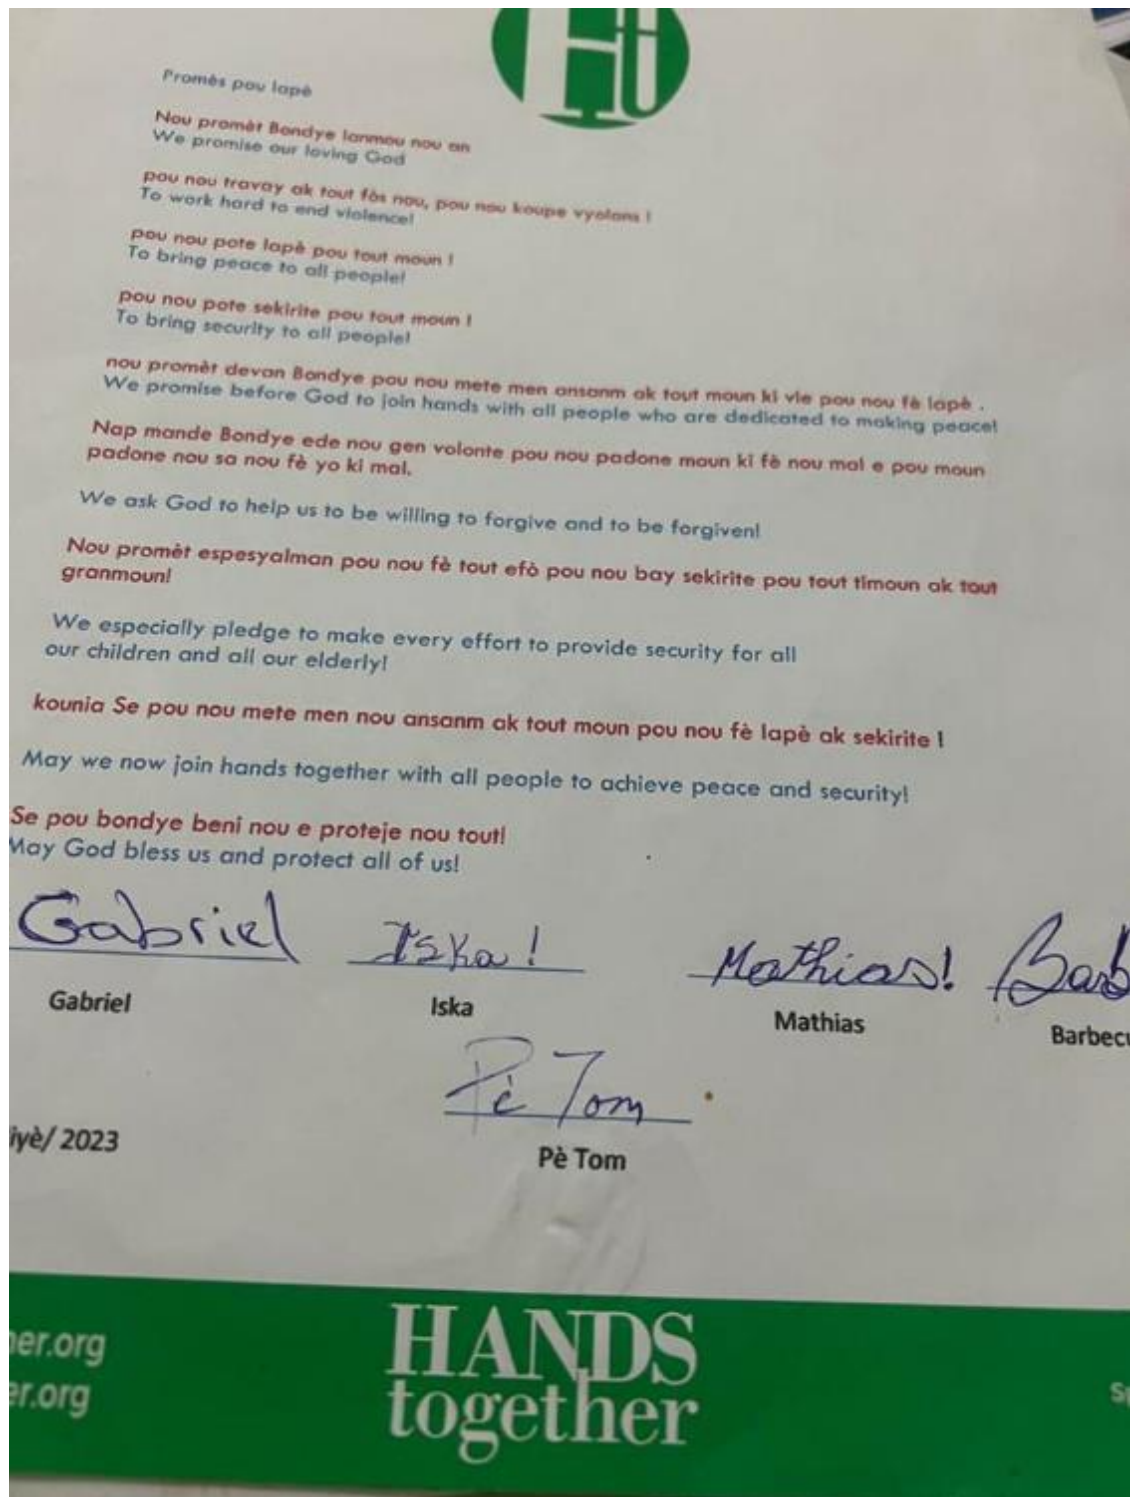 Ht
Promès pou lapè
Nou promèt Bondye lanmou nou an
We promise our loving God
pou nou travay ak tout fòs nou, pou nou koupe vyolans !
To work hard to end violence!
pou nou pote lapè pou tout moun !
To bring peace to all people!
pou nou pote sekirite pou tout moun !
To bring security to all people!
nou promèt devan Bondye pou nou mete men ansanm ak tout moun ki vle pou nou fè lapè .
We promise before God to join hands with all people who are dedicated to making peace!
Nap mande Bondye ede nou gen volonte pou nou padone moun ki fè nou mal e pou moun
padone nou sa nou fè yo ki mal.
We ask God to help us to be willing to forgive and to be forgiven!
Nou promèt espesyalman pou nou fè tout efò pou nou bay sekirite pou tout timoun ak tout
granmoun!
We especially pledge to make every effort to provide security for all
our children and all our elderly!
kounia Se pou nou mete men nou ansanm ak tout moun pou nou fè lapè ak sekirite !
May we now join hands together with all people to achieve peace and security!
Se pou bondye beni nou e proteje nou tout!
May God bless us and protect all of us!
Gabriel Iska! Mathias! Barb
Gabriel Iska Mathias Barbecu
Pè Tom
Pè Tom
iyè/ 2023
HANDS
together
er.org
er.org